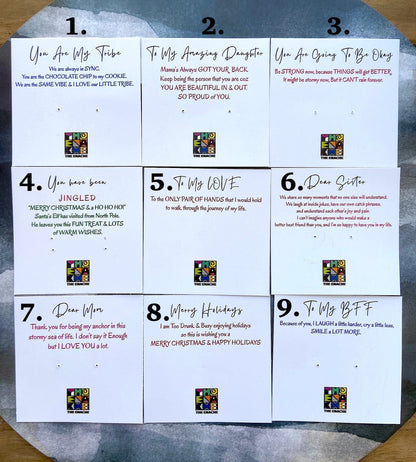 1.
You Are My Tribe
We are always in SYNC.
You are the CHOCOLATE CHIP to my COOKIE.
We are the SAME VIBE & I LOVE our LITTLE TRIBE.
THE KRACHI
2.
To My Amazing Daughter
Mama's Always GOT YOUR BACK.
Keep being the person that you are coz
YOU ARE BEAUTIFUL IN & OUT.
SO PROUD of YOU.
THE KRACHI
3.
You Are Going To Be Okay
Be STRONG now, because THINGS will get BETTER,
It might be stormy now, But it CAN'T rain forever.
THE KRACHI
4.
You have been
JINGLED
"MERRY CHRISTMAS & a HO HO HO!"
Santa's Elf has visited from North Pole.
He leaves you this FUN TREAT & LOTS
of WARM WISHES.
THE KRACHI
5.
To My LOVE
To the ONLY PAIR OF HANDS that I would hold
to walk, through the journey of my life.
THE KRACHI
6.
Dear Sister
We share so many moments that no one else will understand.
We laugh at inside jokes, have our own catch phrases,
and understand each other's joy and pain.
I can't imagine anyone who would make a
better best friend than you, and I'm so happy to have you in my life.
THE KRACHI
7.
Dear Mom
Thank you for being my anchor in this
stormy sea of life. I don't say it Enough
but I LOVE YOU a lot.
THE KRACHI
8.
Merry Holidays
I am Too Drunk & Busy enjoying holidays
so this is wishing you a
MERRY CHRISTMAS & HAPPY HOLIDAYS
THE KRACHI
9.
To My BFF
Because of you, I LAUGH a little harder, cry a little less,
SMILE a LOT MORE.
THE KRACHI